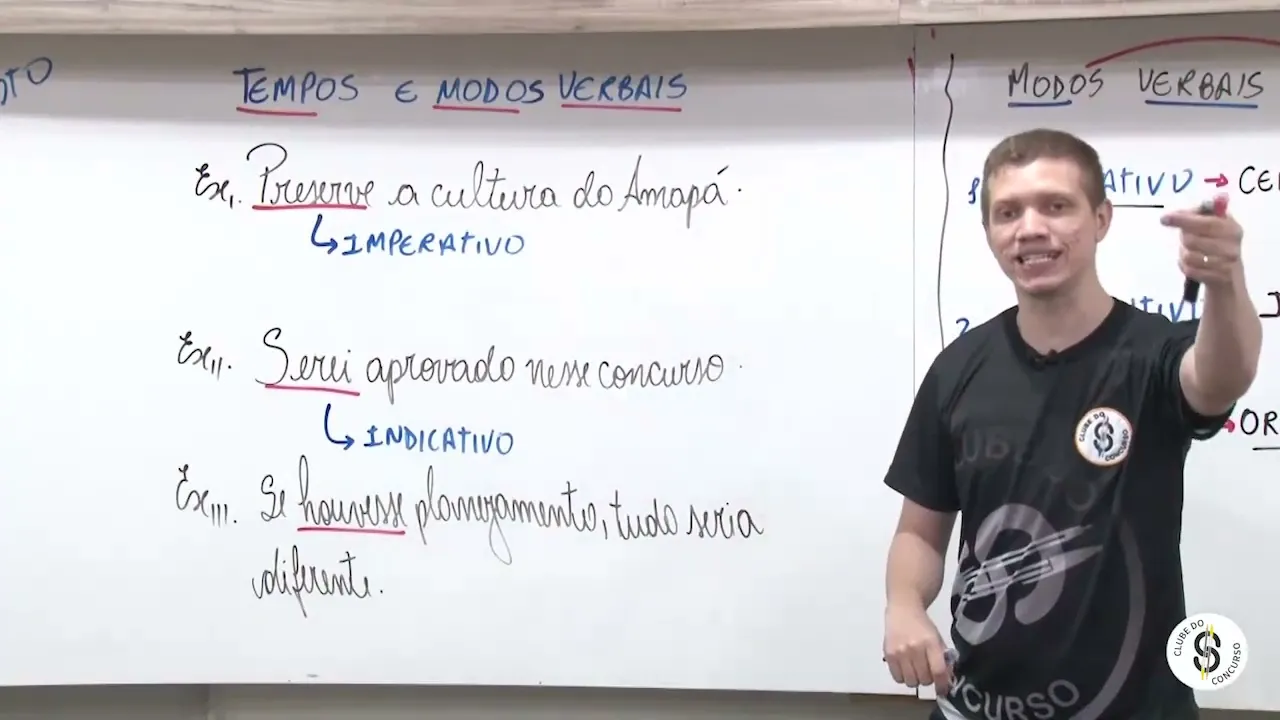 TEMPOS E MODOS VERBAIS
Ex I. Preserve a cultura do Amapá.
IMPERATIVO
Ex II. Serei aprovado nesse concurso.
INDICATIVO
Ex III. Se houvesse planejamento, tudo seria
diferente.
MODOS VERBAIS
ATIVO → CE
2
OR
CLUBE DO CONCURSO
CLUBE DO CONCURSO